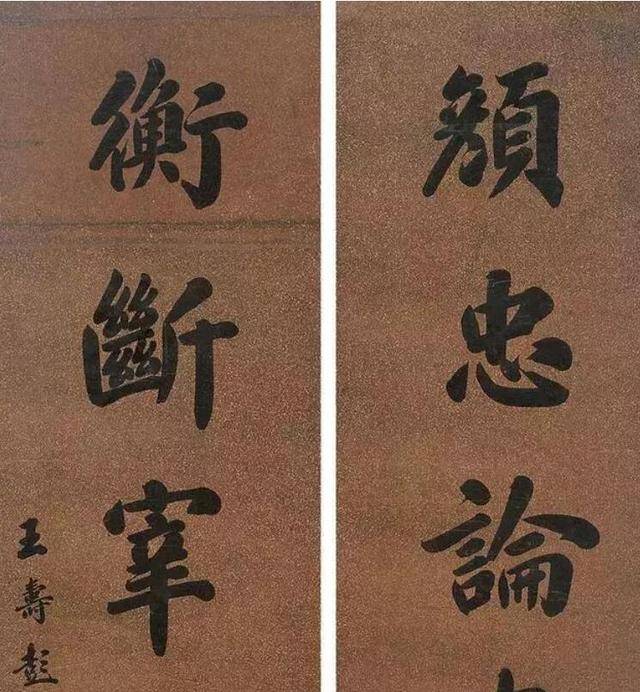 顏忠論
衡斷宰
王壽彭